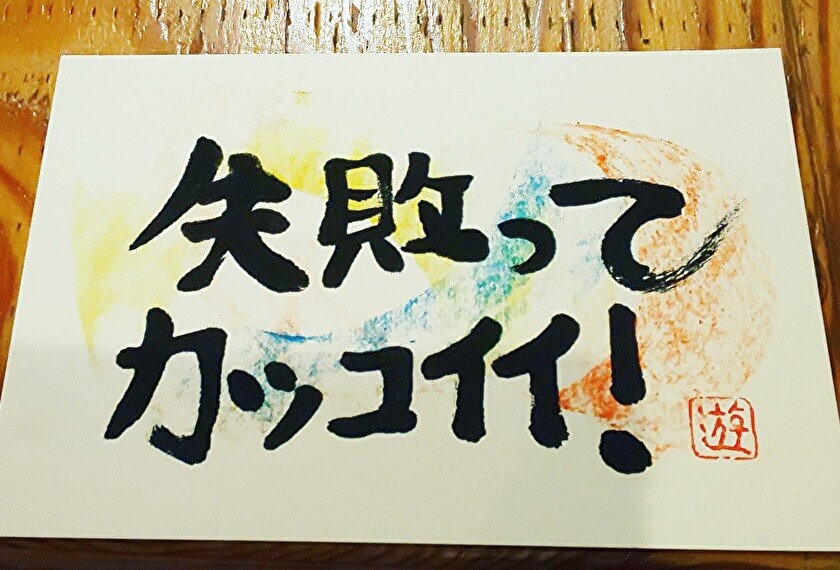 失敗って
カッコイイ!
遊